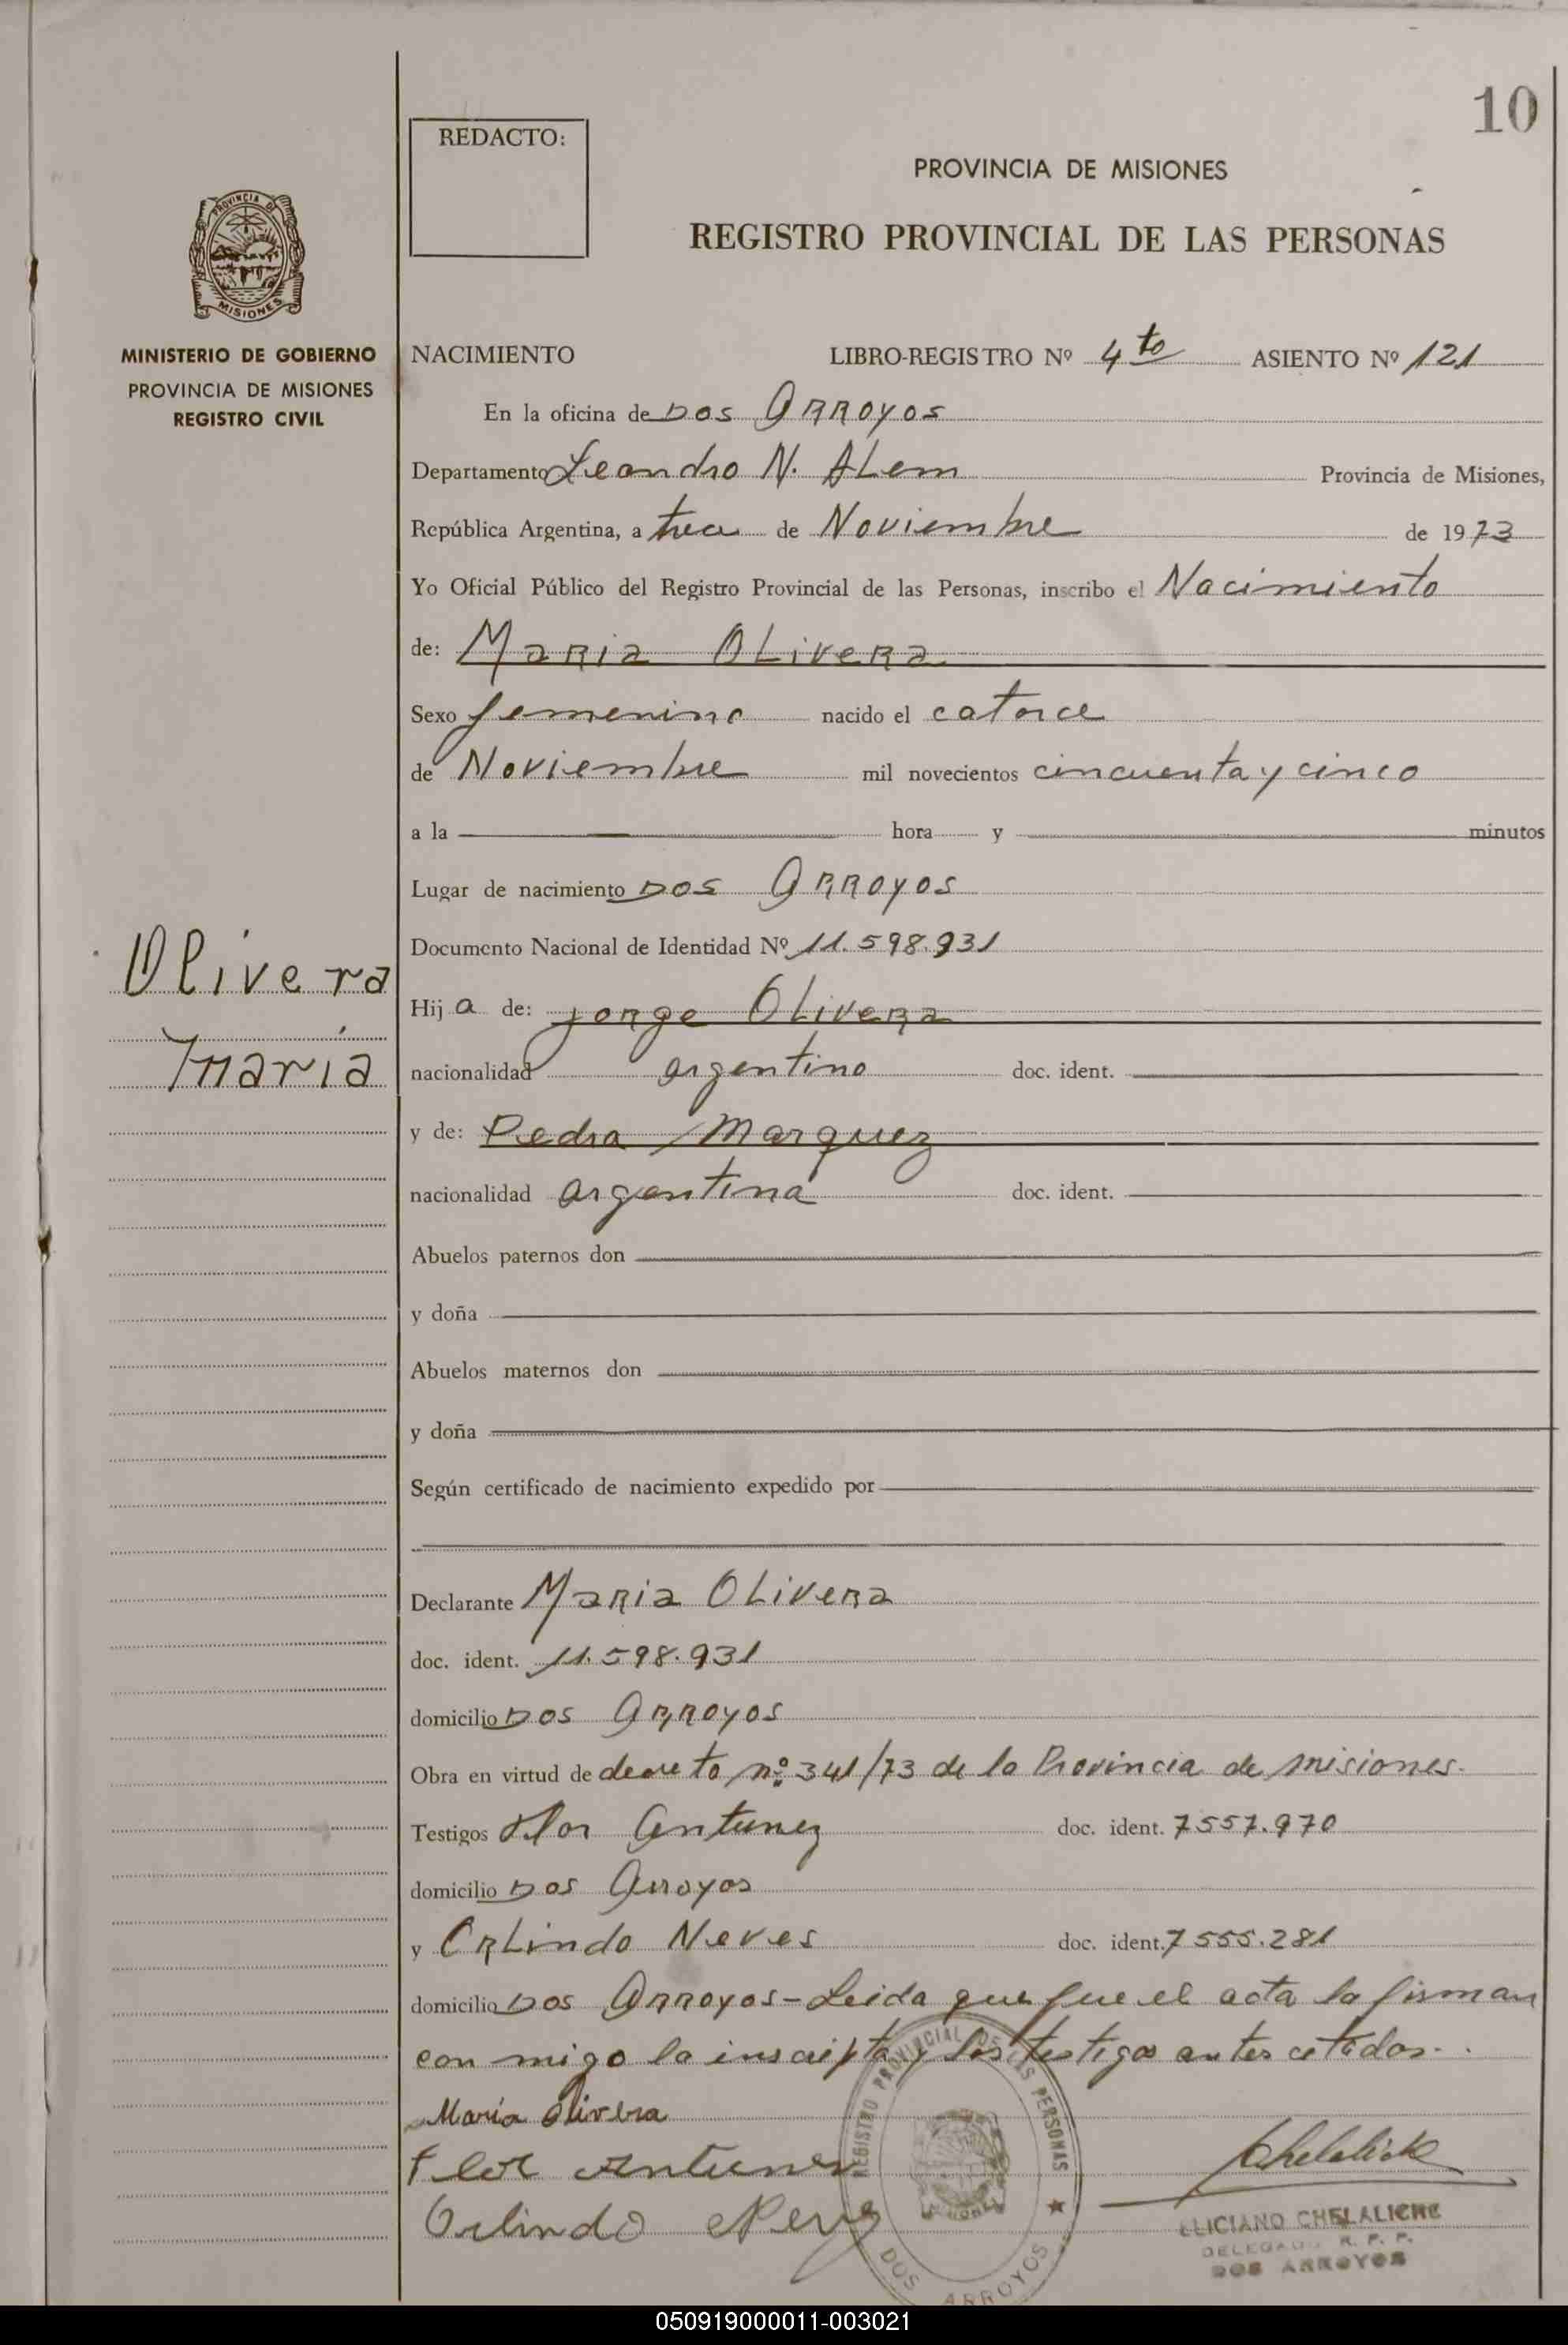 10
REDACTO:
PROVINCIA DE MISIONES
REGISTRO PROVINCIAL DE LAS PERSONAS
PROVINCIA DE
MISIONES
MINISTERIO DE GOBIERNO
PROVINCIA DE MISIONES
REGISTRO CIVIL
NACIMIENTO LIBRO-REGISTRO Nº 4to ASIENTO Nº 121
En la oficina de Dos Arroyos
Departamento Leandro N. Alem Provincia de Misiones,
República Argentina, a tres de Noviembre de 1973
Yo Oficial Público del Registro Provincial de las Personas, inscribo el Nacimiento
de: Maria Olivera
Sexo femenino nacido el catorce
de Noviembre mil novecientos cincuenta y cinco
a la hora y minutos
Lugar de nacimiento Dos Arroyos
Documento Nacional de Identidad Nº 11.598.931
Olivera
Maria
Hij a de: Jorge Olivera
nacionalidad argentino doc. ident.
y de: Pedra Marquez
nacionalidad argentina doc. ident.
Abuelos paternos don
y doña
Abuelos maternos don
y doña
Según certificado de nacimiento expedido por
Declarante Maria Olivera
doc. ident. 11.598.931
domicilio Dos Arroyos
Obra en virtud de decreto nº 341/73 de la Provincia de Misiones.
Testigos Flor Antunez doc. ident. 7557.970
domicilio Dos Arroyos
y Orlindo Neves doc. ident. 7555.281
domicilio Dos Arroyos - Leida que fue el acta la firman
con migo la inscripta y los testigos antes citados.
REGISTRO PROVINCIAL DE LAS PERSONAS
DOS ARROYOS
Maria Olivera
Flor Antunez
Orlindo
CHELALICHE
DELEGADO R. P. P.
DOS ARROYOS
050919000011-003021